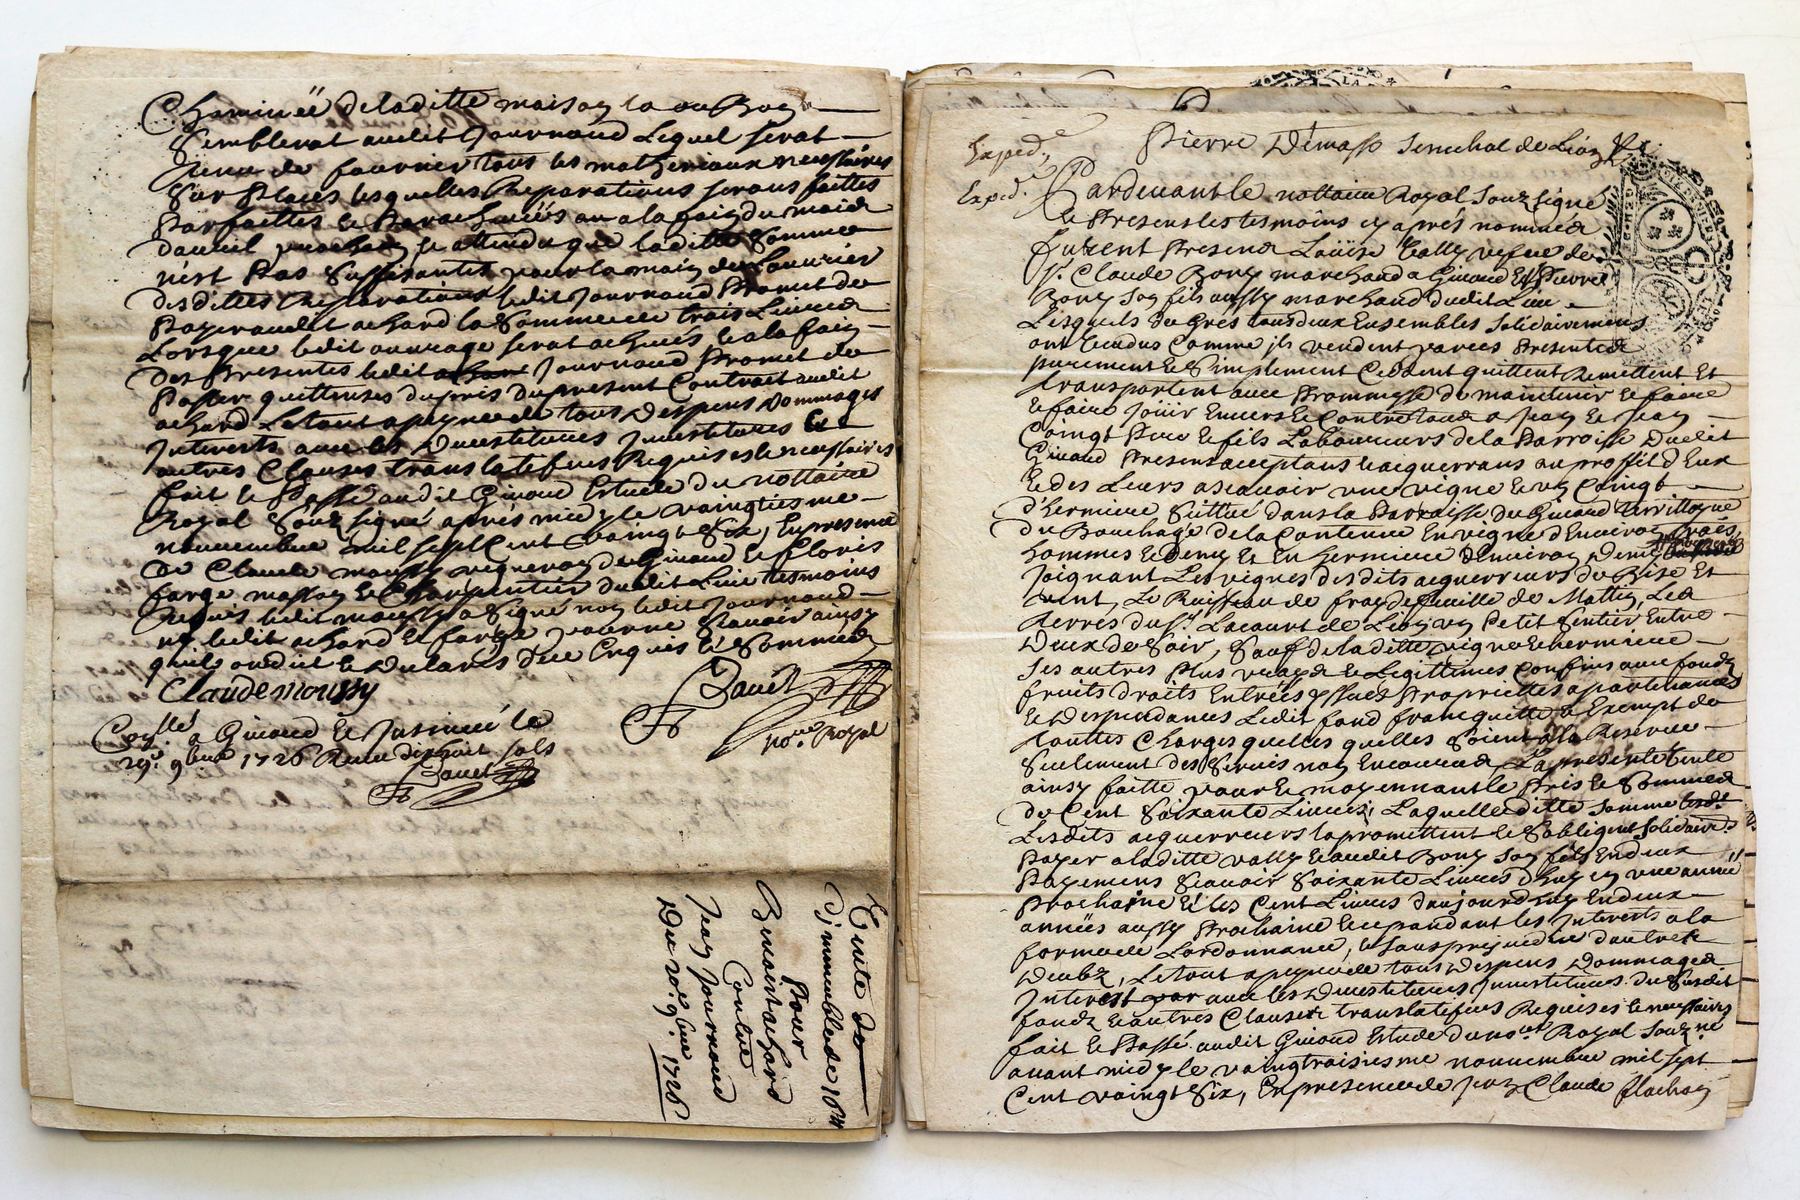 Cheminéé deladitte maison la ou Bon
Semblerat audit Journoud Lequel serat
tenu de fournir tous les matheriaux necessaires
Sur Places lesquelles Reparations serons faittes
Parfaittes et Parachevéés au a la fain du mois
dauril prochain et attendu que laditte Somme
nest Pas Suffisantes pour la main de Louurier
desdittes Reparations ledit Journoud Promet de
Payer audit achard la Somme de trois Liures
Lorsque ledit ouurage serat acheués et a la fain
des Presentes ledit Journoud Promet de
Passer quittenses du pris du present Contrait audit
achard Le tout a peyne de tous Despens Dommages
Interests auec les Deuestitures Inuestitures Et
autres Clauses translatifues Requises et necessaires
fait et Passé audit Giuord Estude du nottaire
Royal Souz signé aprés midy le vaingtiesme
nouuembre mil sept Cent vaingt Six, En presence
De Claude moussy vigneron de Giuord et Floris
farge masson et Charpentier dudit Lieu tesmoins
Requis ledit moussy a Signé non ledit Journoud
ny ledit achard et farge pour ne Scauoir ainsy
quil ont dit et Declarés de ce Enquis et Sommés
Claude moussy
Bouët
no.re Royal
Con.llé a Giuord et Insinué le
29.e 9bre 1726 Receu dix huit sols
Bouët
Vente de
d'immeuble de 10tt
Pour
Benoist achard
Contre
Jean Journoud
Du 20.e 9.bre 1726
Exped.e
Exped.e
Pierre Démasso Senechal de Lion &c
Pardeuant le nottaire Royal Souz signé
et Presens les tesmoins cy aprés nommés
furent Presens Loüise Vally vefue de
S.r Claude Bony marchand a Giuord Et Pierre
Bony son fils aussy marchand dudit Lieu
Lesquels de Grés tous deux Ensembles Solidairement
ont vendus Comme ils vendent par ces Presentes
purement et Simplement Cedent quittent Remettent Et
transportent auec Prommesse de maintenir et faire
et faire Joüir Enuers et Contre tous a Jean et Jean
Coingt Pere et fils Laboureurs de la Parroisse dudit
Giuord Presens acceptans et acquerrans au proffit d'Eux
et des Leurs ascauoir vne vigne et vn Coingt
d'hermiere Scittué dans la Parroisse de Giuord territtoire
du Bouchage de la Contenue En vigne d'Enuiron trois
hommes et Demy et En hermiere d'Enuiron Demy
Joignant Les vignes desdits acquerreurs de Bise Et
vent, Le Ruisseau de de Mattin, Les
terres du S.r Lacourt de Lion vn Petit sentier Entre
Deux de Soir, Sauf de laditte vigne et hermiere
ses autres Plus vrays et Legittimes Confins auec fondz
fruits droits Entréés yssues Proprietés apartenances
et Despendances Ledit fond franc quitte et Exempt de
touttes Charges quelles quelles Soient a la Reserue
Seulement des Seruis non Encourus, La presente vente
ainsy faitte pour et moyennant le Pris et Somme
de Cent Soixante Liures; Laquelle ditte Somme
Lesdits acquerreurs la promettent et Sobligent Solidaire.t
Payer a laditte vally et audit Bony son fils En deux
Payemens Scauoir Soixante Liures d'huy en vne annéé
Prochaine Et les Cent Liures daujourdhuy En deux
annéés aussy Prochaine et cependant les Interests a la
forme de Lordonnance, et sans prejudice d'autres
Deubz, Le tout a peyne de tous Despens Dommages
Interest par auec les Deuestitures Inuestitures du Susdit
fondz et autres Clauses translatifues Requises et necessaires
fait et Passé audit Giuord Estude du no.re Royal Souz.né
auant midy le vaingtroisiesme nouuembre mil sept
Cent vaingt Six, En presence de Jean Claude flachon